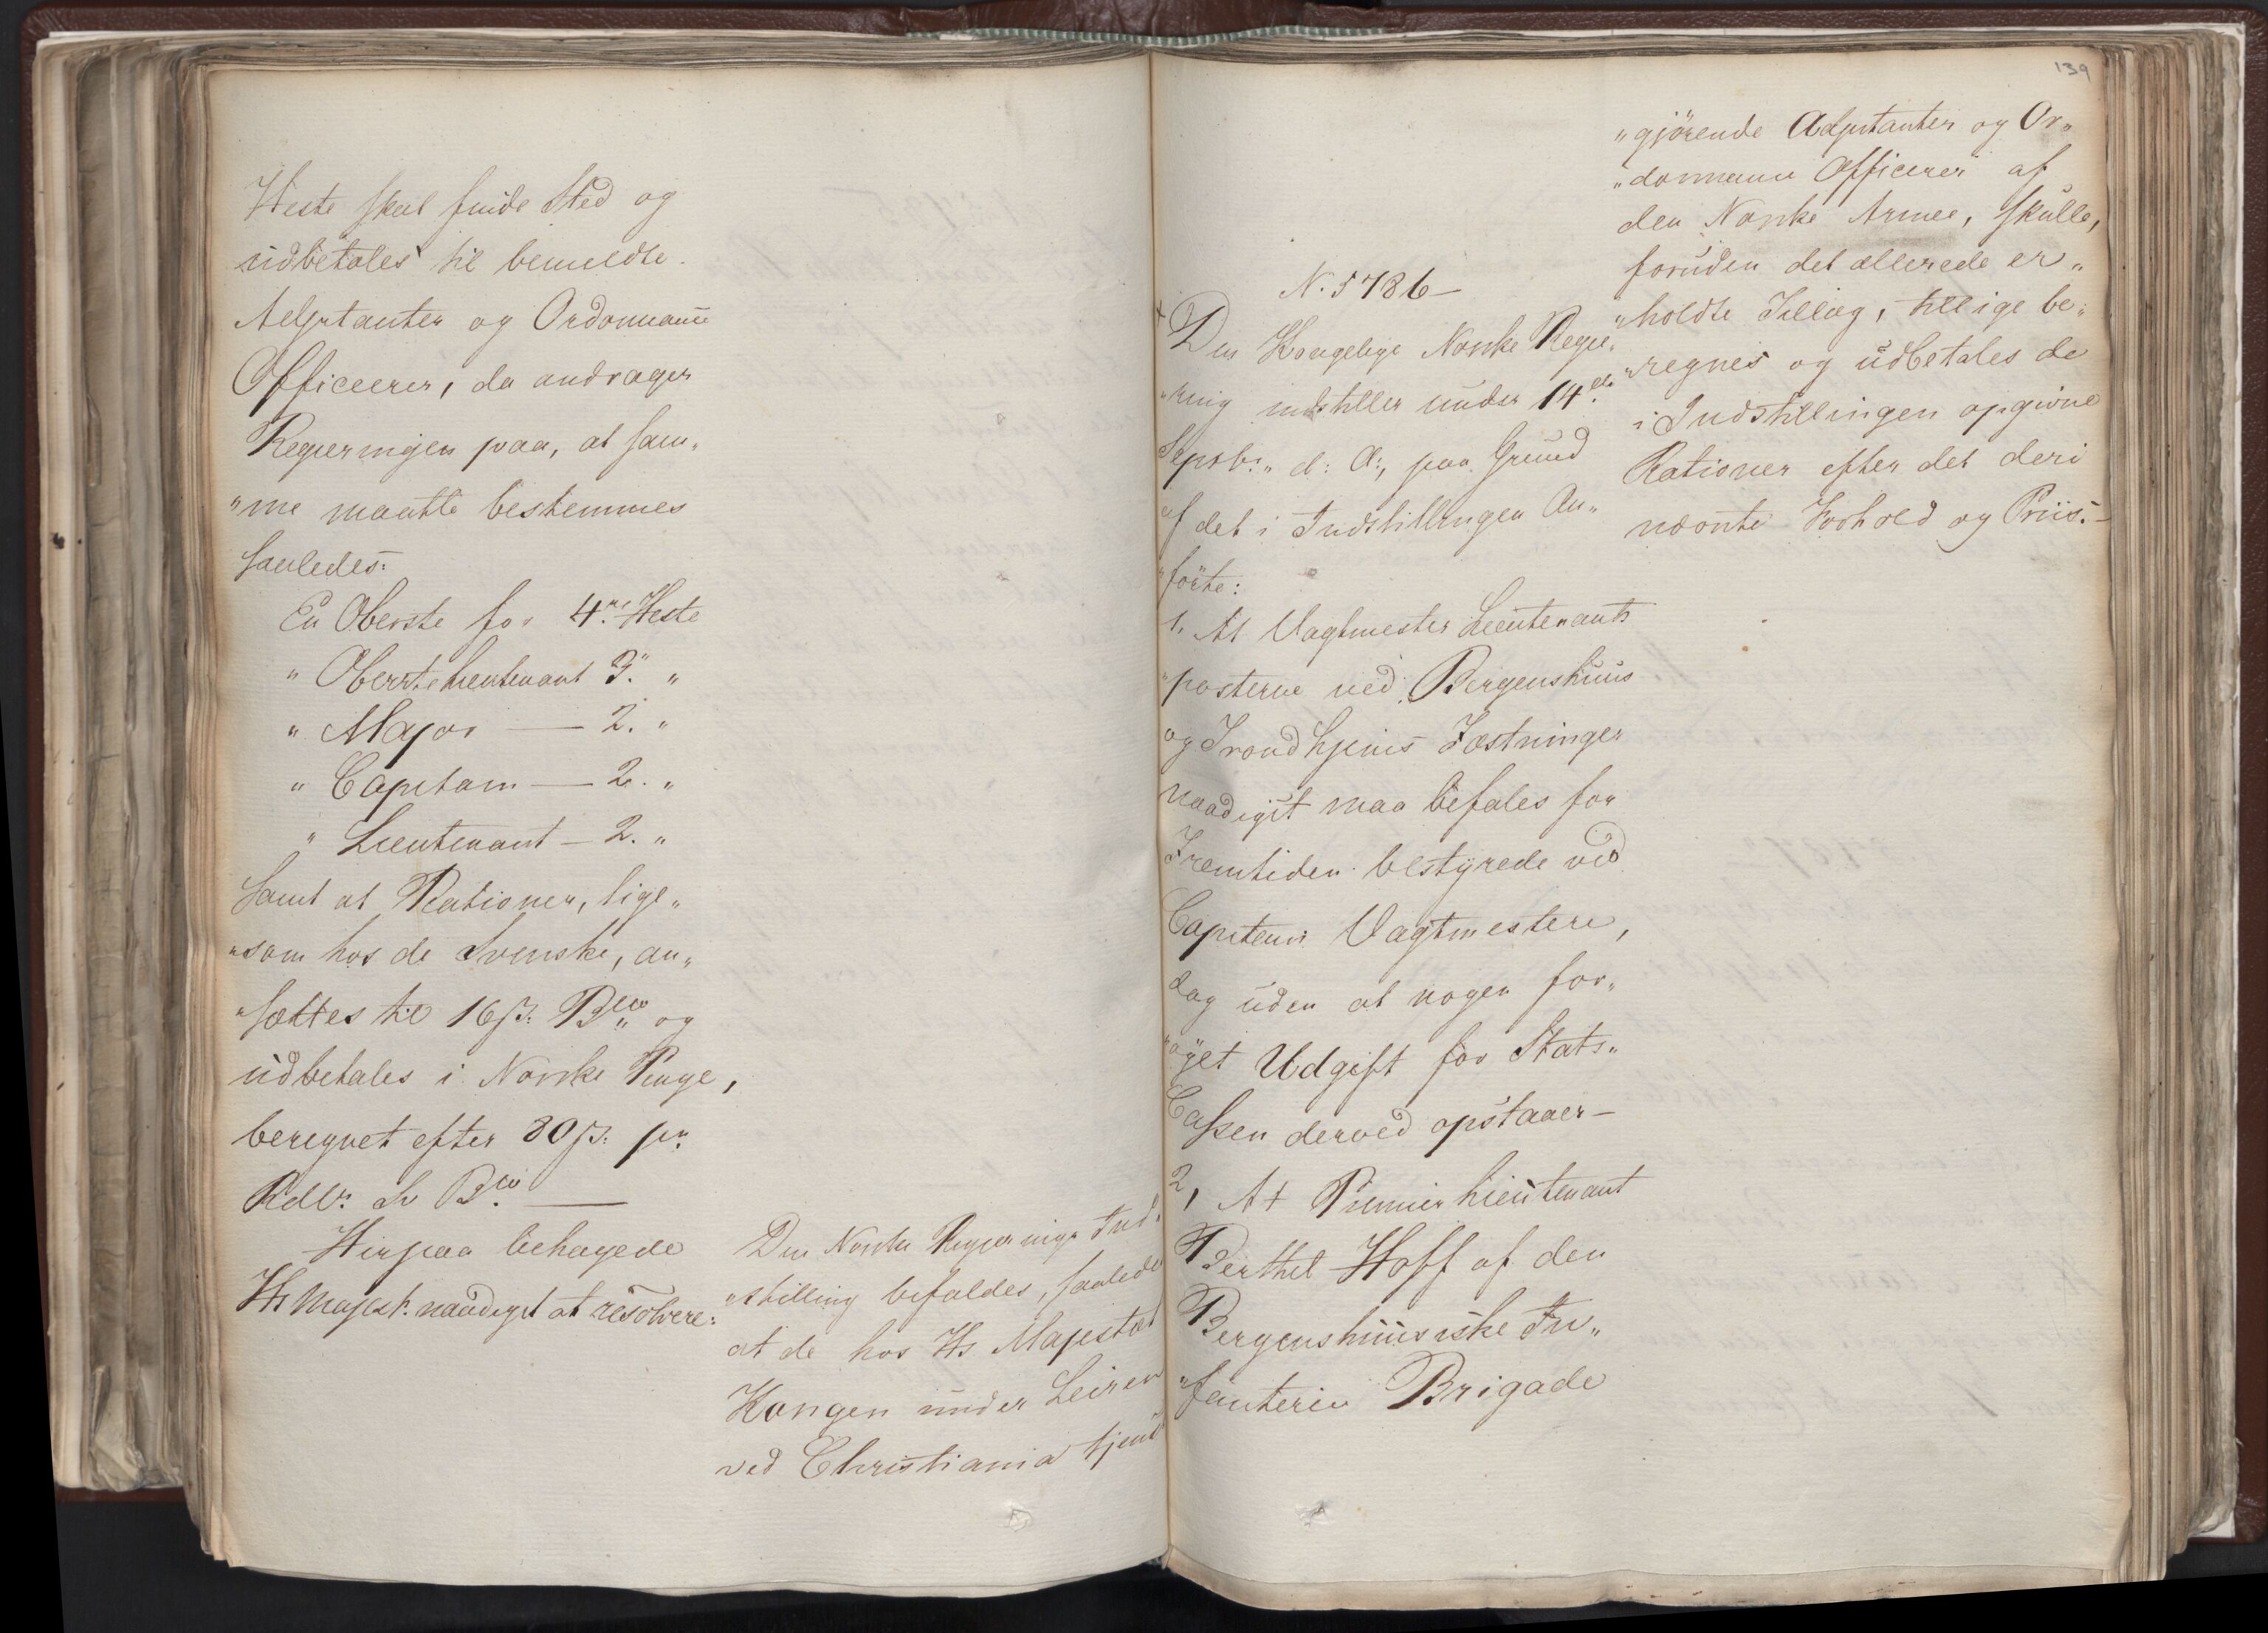 Heste skal finde Sted og
udbetales til bemeldte
Adjutanter og Ordonnance
Officeerer, da andrager
Regjeringen paa, at sam„
„me maatte bestemmes
saaledes:
En Oberste for 4re Heste
„ Oberstelieutenant 3. „
„ Major — 2. „
„ Capitain — 2. „
„ Lieutenant — 2. „
samt at Rationer, lige„
„som hos de Svenske, an„
„sættes til 16 ß. Bco og
udbetales i Norske Penge,
beregnet efter 80 ß. pr.
Rdlr. Sv Bco. —
Hirpaa behagede
Hs Majest. naadigst at resolvere:
Den Norske Regjerings Ind„
„stilling befaldes, saaledes
at de hos Hs Majestæt
Kongen under Leiren
ved Christiania tjenst
139
„gjörende Adjutanter og Or„
„donnance Officerer af
den Norske Armee, skulle,
foruden det allerede er„
„holdte Tillæg, tillige be„
„regnes og udbetales de
i Indstillingen opgivne
Rationer efter det deri
nævnte Forhold og Priis. —
N. 5786 —
Den Kongelige Norske Regje„
„ring indstiller under 14de
Septbr. d: A:, paa Grund
af det i Indstillingen An„
„förte:
1, At Vagtmester Lieutenants
„posterne ved Bergenshuus
og Trondhjems Fæstninger
naadigst maa befales for
Fremtiden bestyrede ved
Capitain Vagtmestere,
dog uden at nogen for„
„öget Udgift for Stats„
Cassen derved opstaaer —
2, At Premierlieutenant
Berthel Hoff af den
Bergenshuusiske In„
„fanterie Brigade